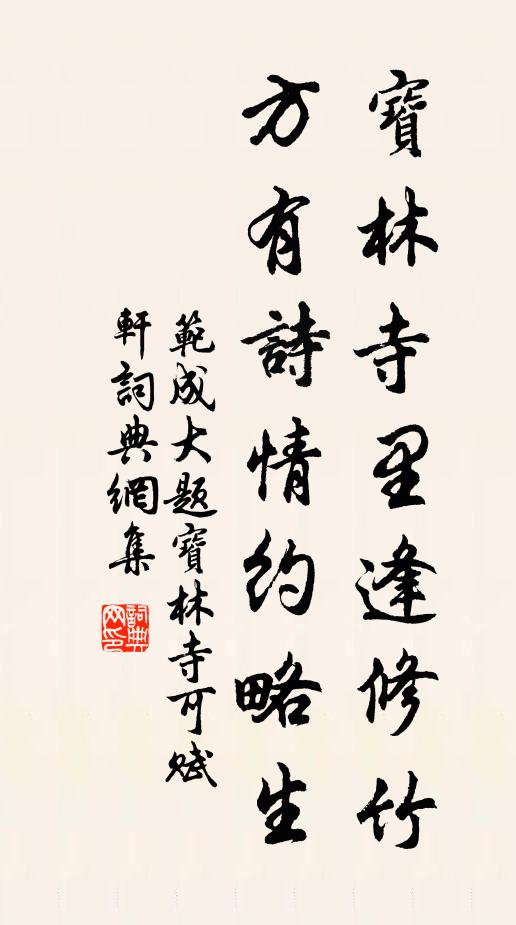 寶林寺里逢修竹
方有詩情約略生
範成大題寶林寺可賦
軒詞典網集
詞典網印